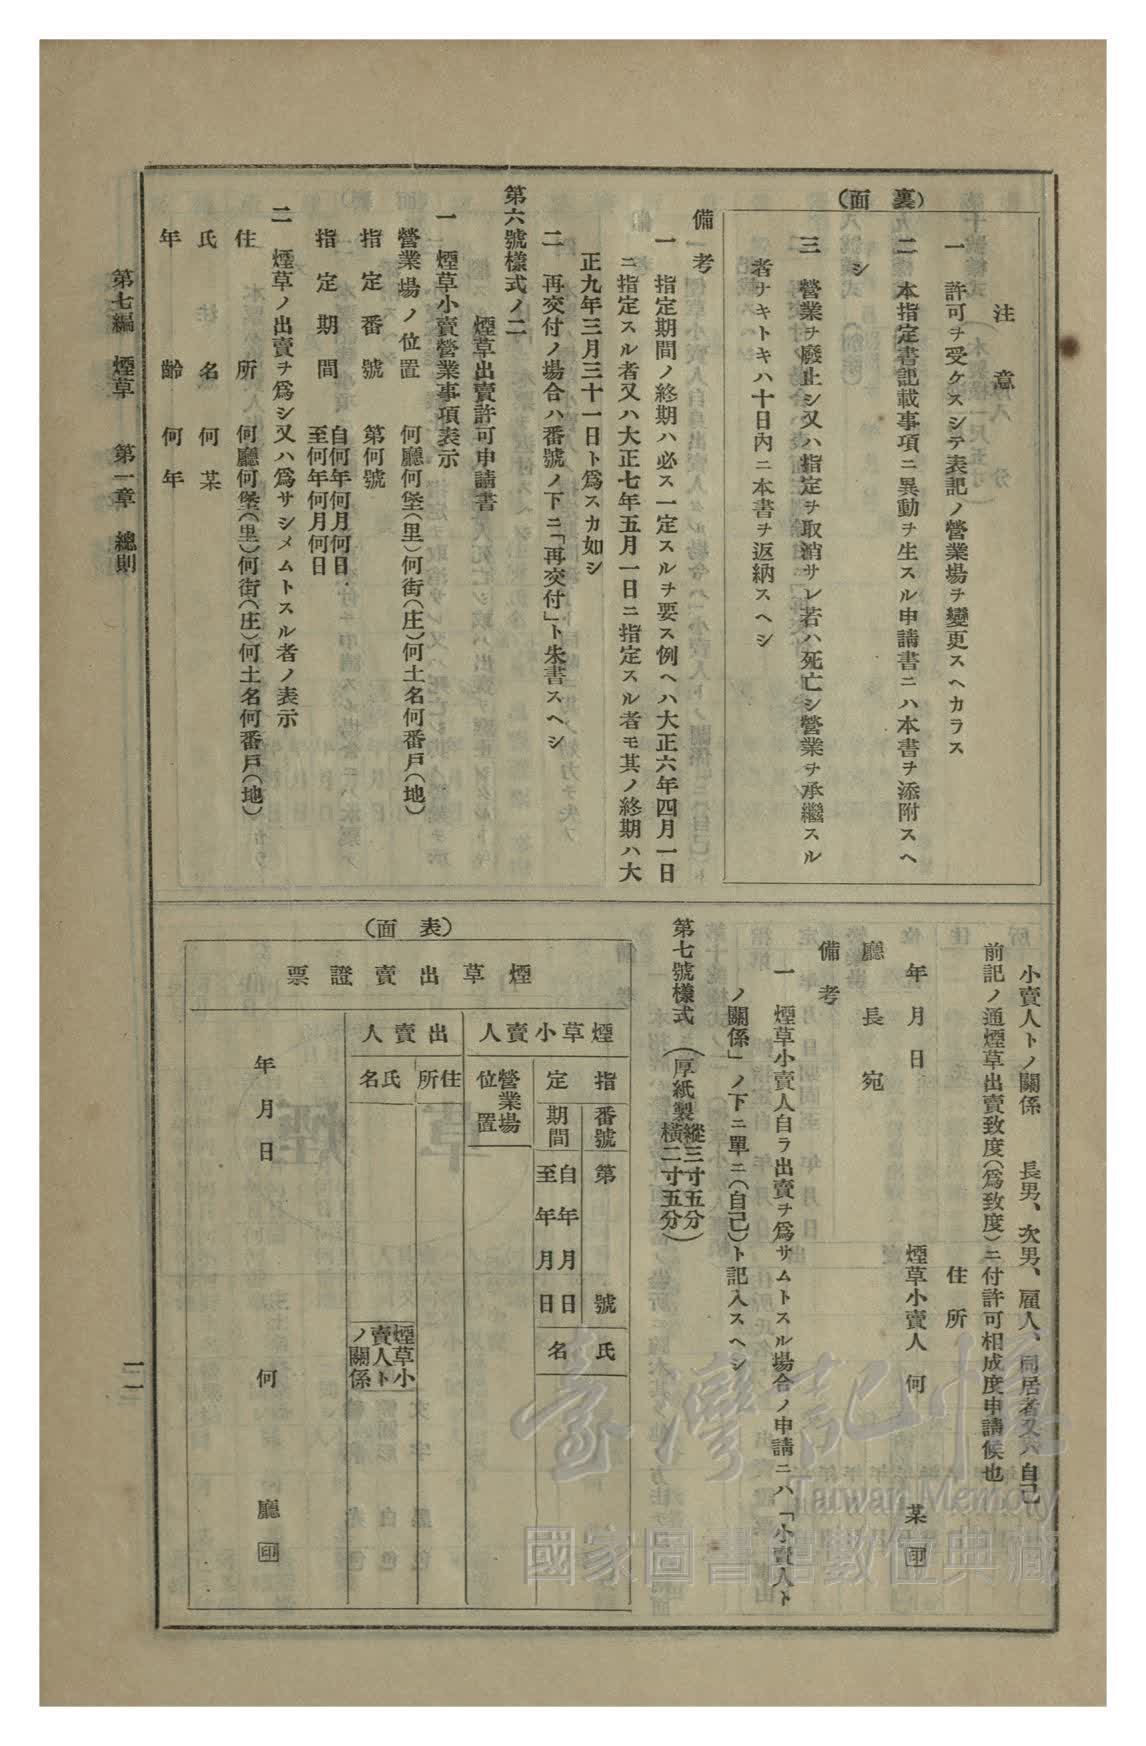 (裏面)
注意
一 許可ヲ受ケスシテ表記ノ營業場ヲ變更スヘカラス
二 本指定書記載事項ニ異動ヲ生スル申請書ニハ本書ヲ添附スヘ
シ
三 營業ヲ廢止シ又ハ指定ヲ取消サレ若ハ死亡シ營業ヲ承繼スル
者ナキトキハ十日內ニ本書ヲ返納スヘシ
備考
一 指定期間ノ終期ハ必ス一定スルヲ要ス例ヘハ大正六年四月一日
ニ指定スル者又ハ大正七年五月一日ニ指定スル者モ其ノ終期ハ大
正九年三月三十一日ト爲スカ如シ
二 再交付ノ場合ハ番號ノ下ニ「再交付」ト朱書スヘシ
第六號樣式ノ二
煙草出賣許可申請書
一 煙草小賣營業事項表示
營業場ノ位置 何廳何堡(里)何街(庄)何土名何番戶(地)
指定番號 第何號
指定期間 自何年何月何日
至何年何月何日
二 煙草ノ出賣ヲ爲シ又ハ爲サシメムトスル者ノ表示
住所 何廳何堡(里)何街(庄)何土名何番戶(地)
氏名 何某
年齡 何年
小賣人トノ關係 長男、次男、雇人、同居者又ハ自己
前記ノ通煙草出賣致度(爲致度)ニ付許可相成度申請候也
住所
年月日 煙草小賣人 何某 印
廳長宛
備考
一 煙草小賣人自ラ出賣ヲ爲サムトスル場合ノ申請ニハ「小賣人ト
ノ關係」ノ下ニ單ニ(自己)ト記入スヘシ
第七號樣式 (厚紙製 縱三寸五分
橫二寸五分)
(表面)
煙草出賣證票
煙草小賣人
指定
番號 第 號
期間 自年月日
至年月日
氏名
營業場
位置
出賣人
住所
氏名
煙草小
賣人ト
ノ關係
年月日 何廳 印
第七編 煙草 第一章 總則
一一
臺灣記憶
Taiwan Memory
國家圖書館數位典藏